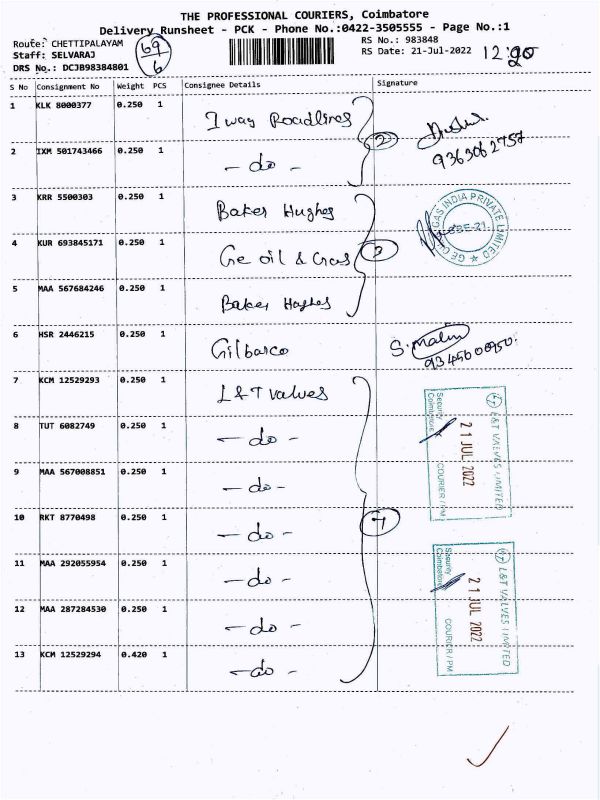 THE PROFESSIONAL COURIERS, Coimbatore
Delivery Runsheet - PCK - Phone No.:0422-3505555 - Page No.:1
Route: CHETTIPALAYAM
RS No.: 983848
Staff: SELVARAJ
RS Date: 21-Jul-2022
DRS No.: DCJB98384801
69
6
S No Consignment No Weight PCS Consignee Details Signature
1 KLK 8000377 0.250 1 I way Roadlines
2 IXM 501743466 0.250 1 - do - 2
9363062757
3 KRR 5500303 0.250 1 Baker Hughes
4 KUR 693845171 0.250 1 Ge oil & Gas 3
5 MAA 567684246 0.250 1 Baker Hughes
6 HSR 2446215 0.250 1 Gilbarco S. Malini
7 KCM 12529293 0.250 1 L&T valves
8 TUT 6082749 0.250 1 - do -
9 MAA 567008851 0.250 1 - do -
10 RKT 8770498 0.250 1 - do - 7
11 MAA 292055954 0.250 1 - do -
12 MAA 287284530 0.250 1 - do -
13 KCM 12529294 0.420 1 - do -
L&T VALVES LIMITED
21 JUL 2022
Security
Coimbatore
COURIER / PM
L&T VALVES LIMITED
21 JUL 2022
Security
Coimbatore
COURIER / PM